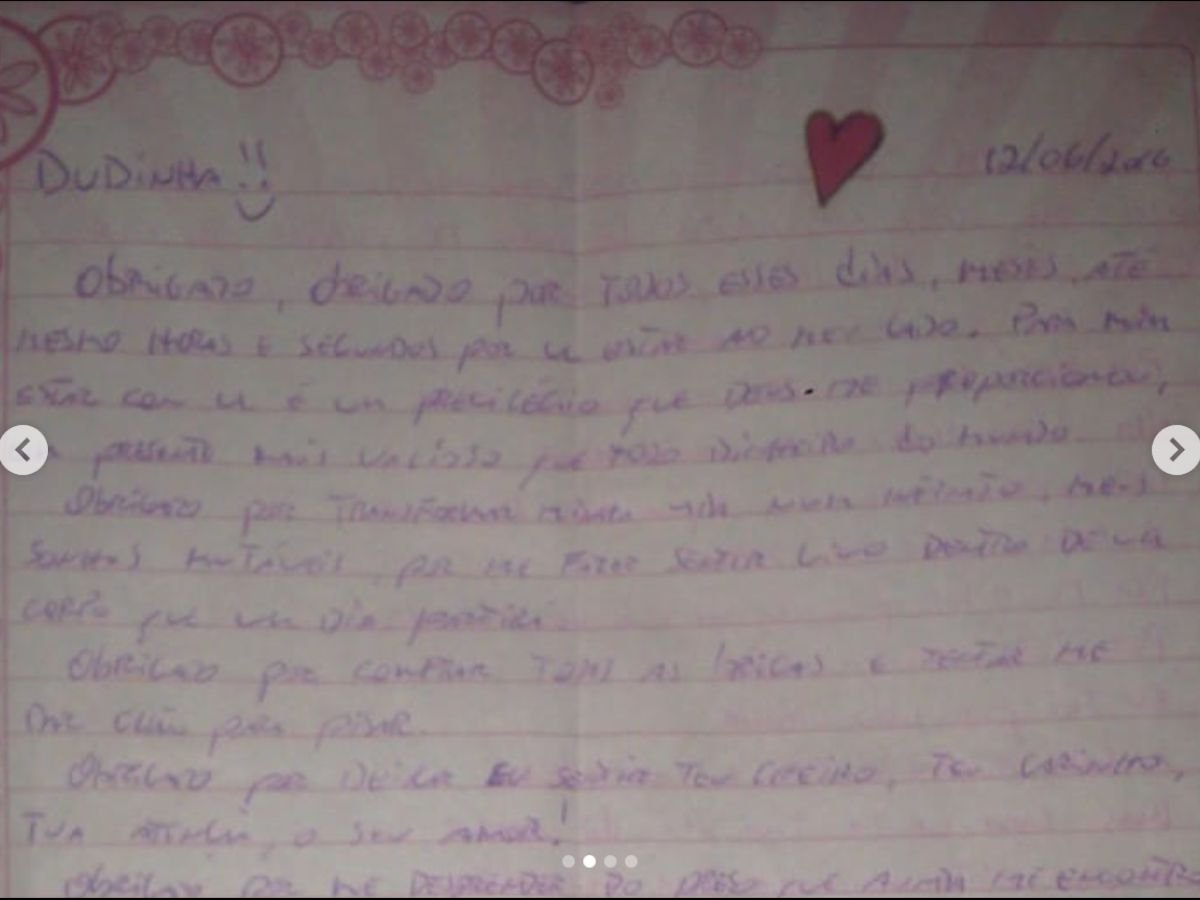 DUDINHA!! 12/06/2016
OBRIGADO, OBRIGADO POR TODOS ESSES DIAS, MESES, ATÉ
MESMO HORAS E SEGUNDOS POR VC ESTAR AO MEU LADO. PARA MIM
ESTAR COM VC É UM PRIVILÉGIO QUE DEUS ME PROPORCIONOU,
PRESENTE MAIS VALIOSO QUE TODO DINHEIRO DO MUNDO
OBRIGADO POR TRANSFORMAR MINHA VIDA NUM
SONHOS POR ME FAZER SENTIR VIVO DENTRO DE UM
CORPO QUE UM DIA
OBRIGADO POR COMPRAR AS BRIGAS E TENTAR ME
DAR CHÃO PARA PISAR.
OBRIGADO POR DEIXAR EU SENTIR TEU CHEIRO, TEU CARINHO,
TUA O SEU AMOR!
OBRIGADO POR ME DO QUE ME ENCONTRO